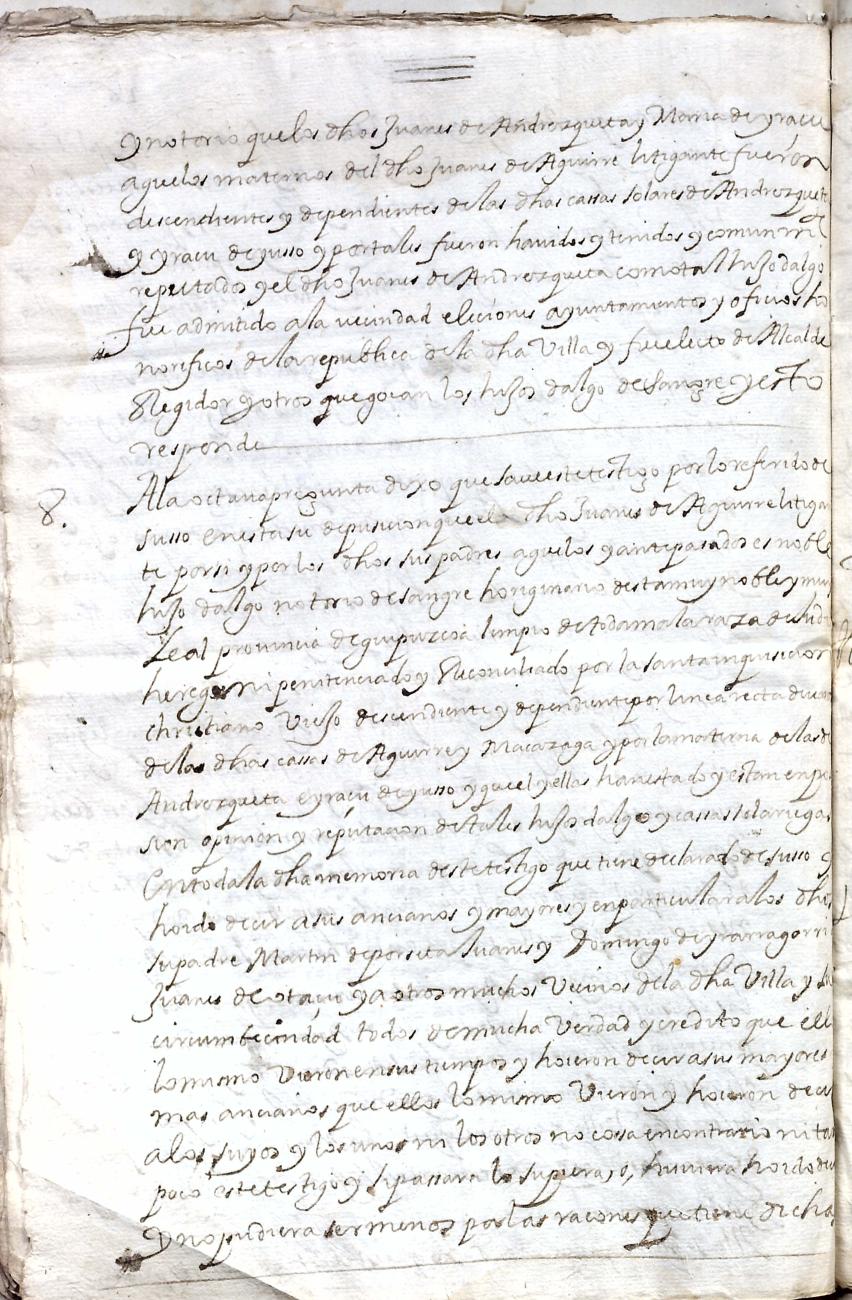 y notorio que los dhos Juanes de Androzqueta y Maria de yraçu
aguelos maternos del dho Juanes de Aguirre litigante fueron
descendientes y dependientes de las dhas cassas solares de Androzquet
y yraçu de yusso y por tales fueron havidos y tenidos y comunm
reputados y el dho Juanes de Androzqueta como tal hijo dalgo
fue admitido a la vecindad eleciones ayuntamientos y oficios ho
norificos de la republica de la dha Villa y fue electo de Alcalde
Regidor y otros que goçan los hijos dalgo de sangre y esto
responde
8. A la octava pregunta dixo que save este testigo por lo referido de
susso en esta su deposicion que el dho Juanes de Aguirre litigan
te por si y por los dhos sus padres aguelos y antepasados es noble
hijo dalgo notorio de sangre horiginario desta muy noble y muy
Leal provincia de guipuzcoa limpio de toda mala raza de Judi
herege ni penitenciado y Reconciliado por la santa inquisicion
christiano Viejo descendiente y dependiente por linea recta de
de las dhas cassas de Aguirre y Macazaga y por la materna de las de
Androzqueta e yraçu de yusso y que el y ellas han estado y estan en pos
sion opinion y reputacion de tales hijos dalgo y cassas solariegas
en toda la dha memoria deste testigo que tiene declarado de susso y
hoido decir a sus ancianos y mayores y en particular a los dhos
su padre Martin de Juanes y Domingo de yrarragorri
Juanes de otaçu y a otros muchos Vecinos de la dha Villa y su
circumbecindad todos de mucha Verdad y credito que ell
lo mismo Vieron en sus tiempos y hoieron decir a sus mayores
mas ancianos que ellos lo mismo Vieron y hoieron deci
a los suyos y los unos ni los otros no cossa en contrario ni tan
poco este testigo y si passara lo supiera, o, huviera hoido de
y no pudiera ser menos por las raçones que tiene dicha